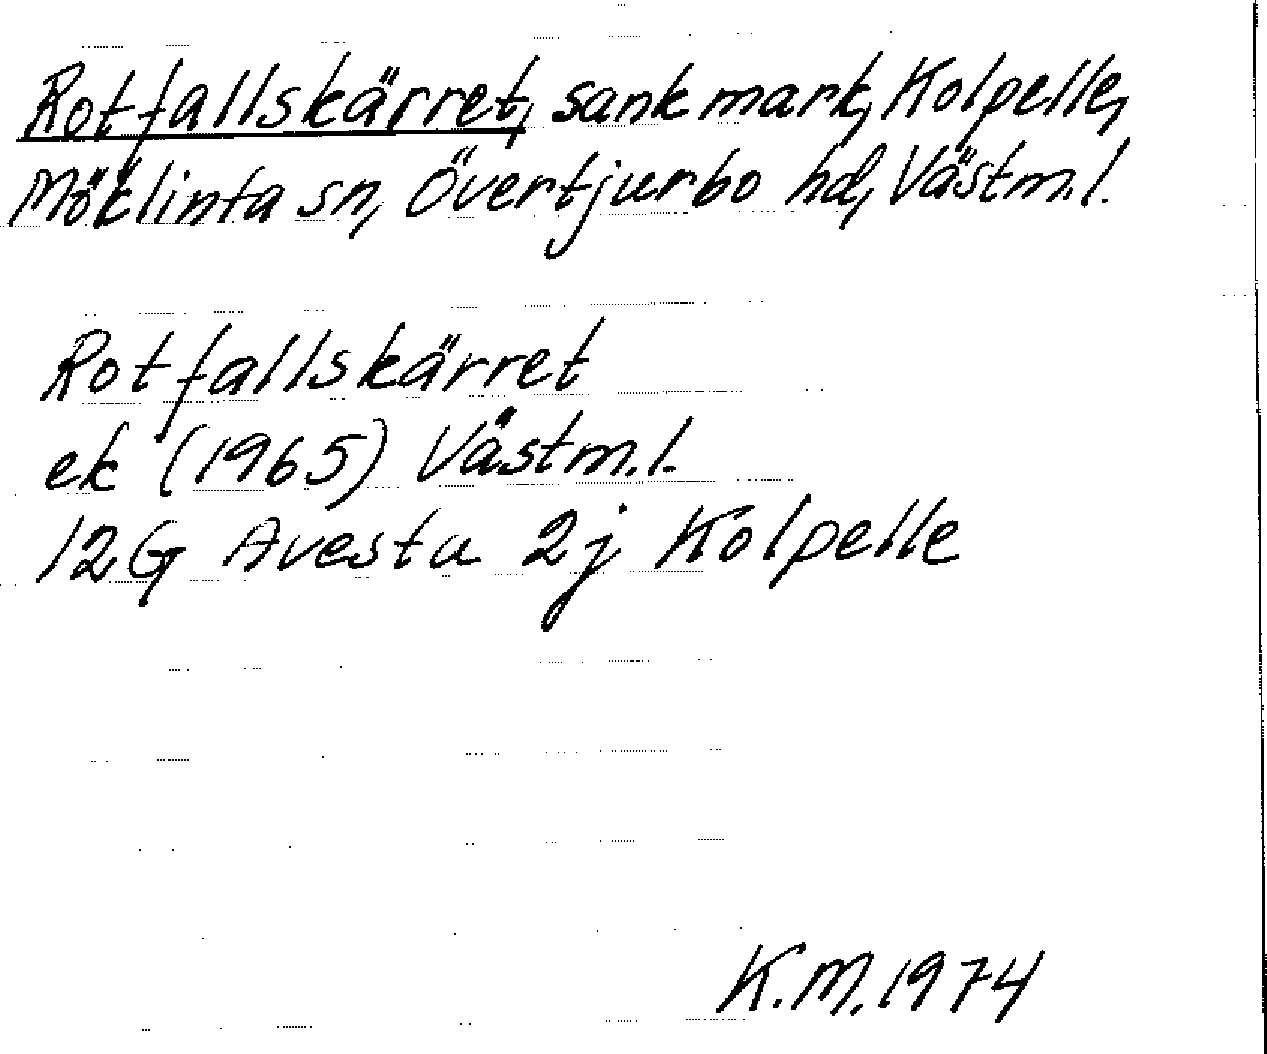 Rotfallskärret, sank mark, Kolpelle,
Möklinta sn, Övertjurbo hd, Västm.l.
Rotfallskärret
ek (1965) Västm.l.
12G Avesta 2j Kolpelle
K.M. 1974